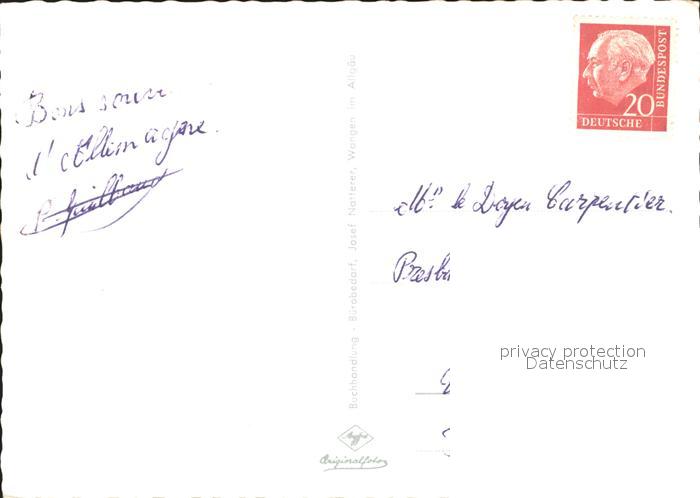 Bons souve
d'Allemagne.
20
BUNDESPOST
DEUTSCHE
Buchhandlung - Bürobedarf, Josef Natterer, Wangen im Allgäu
le Doyen Carpentier.
Presb
privacy protection
Datenschutz
Agfa
Originalfoto